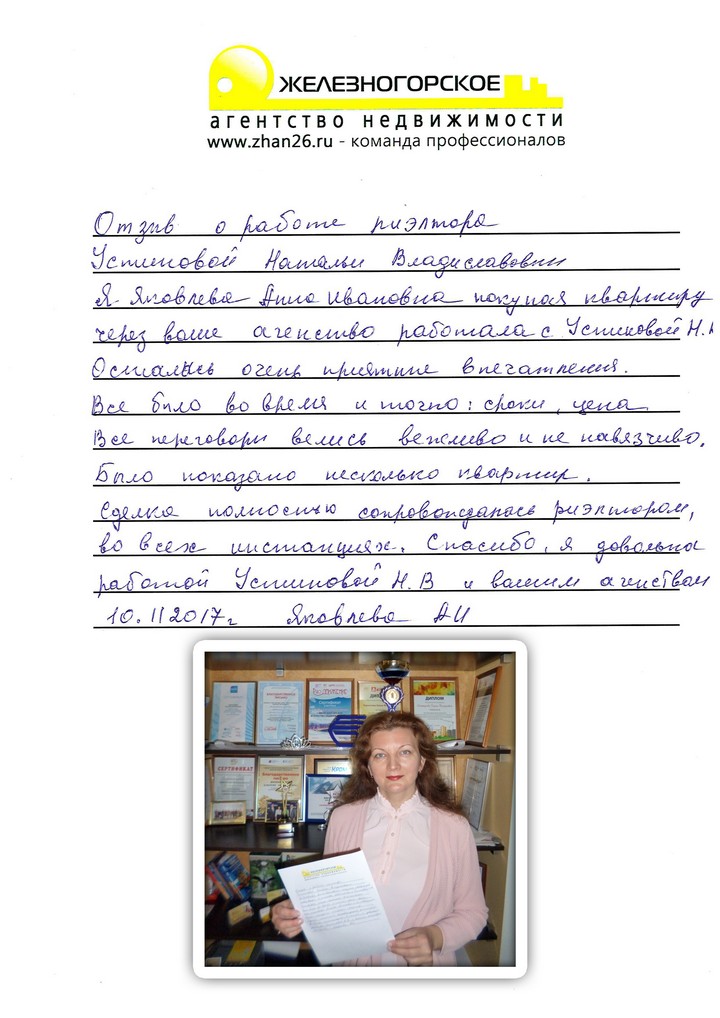 ЖЕЛЕЗНОГОРСКОЕ
агентство недвижимости
www.zhan26.ru - команда профессионалов
Отзыв о работе риэлтора
Устиновой Натальи Владиславовны
Я Яковлева Анна Ивановна покупая квартиру
через ваше агенство работала с Устиновой Н.
Остались очень приятные впечатления.
Все было во время и точно: сроки, цена
Все переговоры велись вежливо и не навязчиво.
Было показано несколько квартир.
Сделка полностью сопровождалась риэлтором,
во всех инстанциях. Спасибо, я довольна
работой Устиновой Н.В и вашим агенством
10.11 2017г Яковлева АИ
СЕРТИФИКАТ
ДИПЛОМ
ЖЕЛЕЗНОГОРСКОЕ